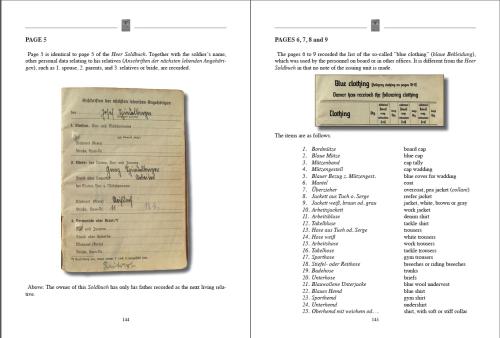 PAGE 5
Page 5 is identical to page 5 of the Heer Soldbuch. Together with the soldier's name,
other personal data relating to his relatives (Anschriften der nächsten lebenden Angehöri-
gen), such as 1. spouse, 2. parents, and 3. relatives or bride, are recorded.
Anschriften der nächsten lebenden Angehörigen
des
Above: The owner of this Soldbuch has only his father recorded as the next living rela-
tive.
144
PAGES 6, 7, 8 and 9
The pages 6 to 9 recorded the list of the so-called "blue clothing" (blaue Bekleidung),
which was used by the personnel on board or in other offices. It is different from the Heer
Soldbuch as that no note of the issuing unit is made.
Blue clothing
Owner has received the following clothing
Clothing
The items are as follows:
1. Bordmütze board cap
2. Blaue Mütze blue cap
3. Mützenband cap tally
4. Mützengestell cap wadding
5. Blauer Bezug z. Mützengest. blue cover for wadding
6. Mantel coat
7. Überzieher overcoat, pea jacket (collani)
8. Jackett aus Tuch o. Serge reefer jacket
9. Jackett weiß, braun od. grau jacket, white, brown or gray
10. Arbeitsjackett work jacket
11. Arbeitsbluse denim shirt
12. Takelbluse tackle shirt
13. Hose aus Tuch od. Serge trousers
14. Hose weiß white trousers
15. Arbeitshose work trousers
16. Takelhose tackle trousers
17. Sporthose gym trousers
18. Stiefel- oder Reithose breeches or riding breeches
19. Badehose trunks
20. Unterhose briefs
21. Blauwollene Unterjacke blue wool undervest
22. Blaues Hemd blue shirt
23. Sporthemd gym shirt
24. Unterhemd undershirt
25. Oberhemd mit weichem od.... shirt, with soft or stiff collar
145